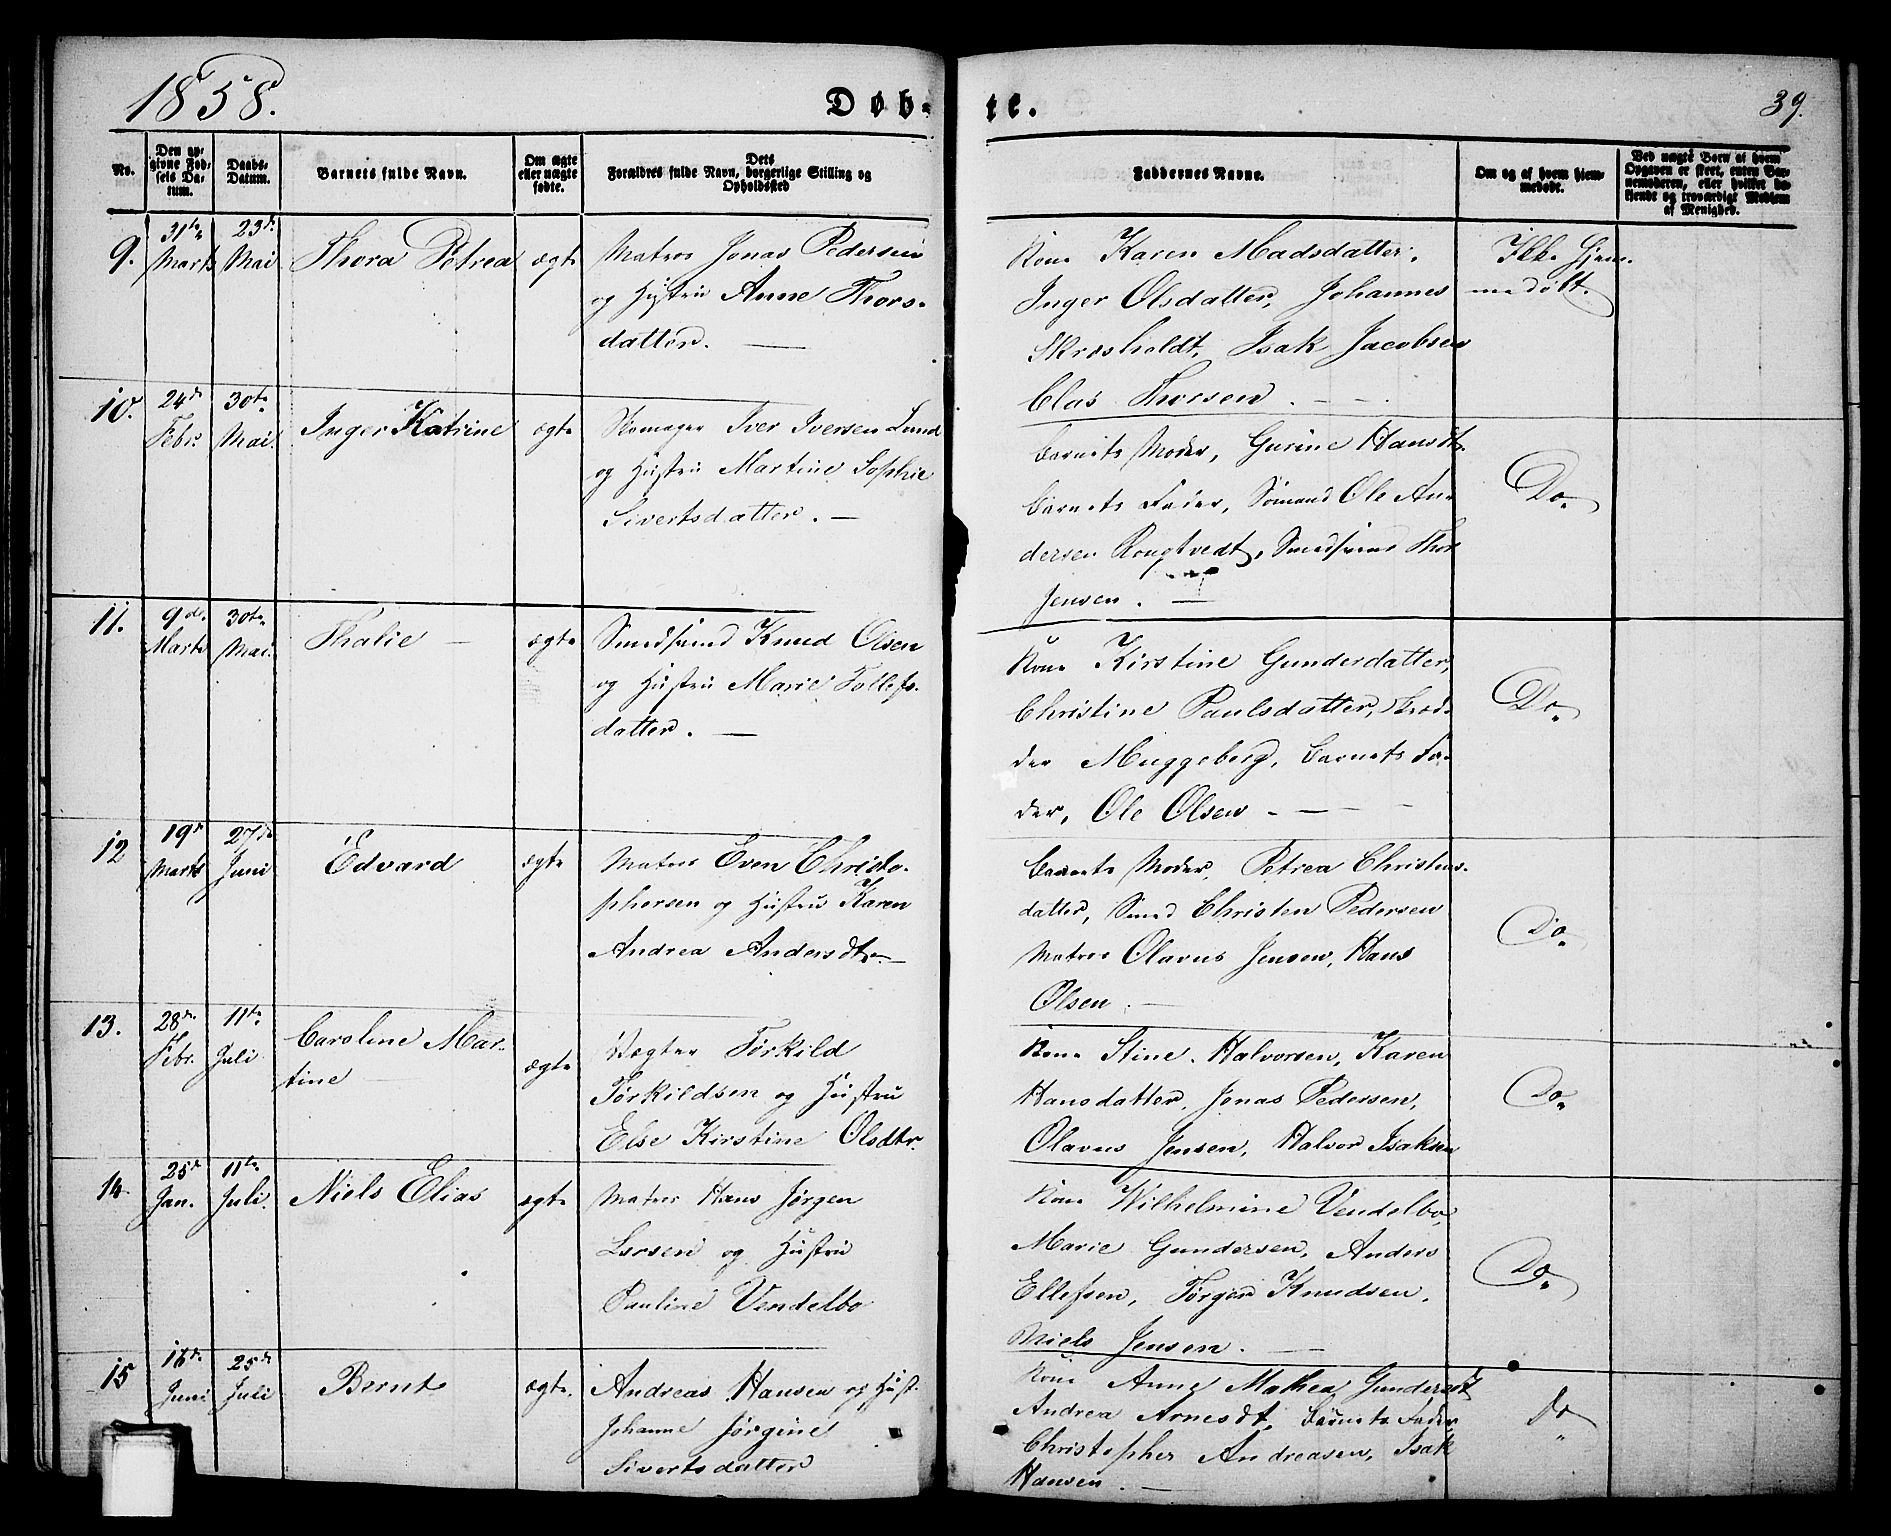 1858.
Døb-
te.
39.
No.
Den op-
givne Fød-
sels Da-
tum.
Daabs-
Datum.
Barnets fulde Navn.
Om ægte
eller uægte
fødte.
Dets
Forældres fulde Navn, borgerlige Stilling og
Opholdssted
Faddernes Navne.
Om og af hvem hjem-
medøbt.
Ved uægte Børn af hvem
Opgaven er skeet, enten Bar-
nemoderen, eller hvilket be-
kjendt og troværdigt Medlem
af Menighed.
9.
31te
Marts
23de
Mai
Thora Petrea
ægte
Matros Jonas Pedersen
og Hustru Anne Thors-
datter. —
Kone Karen Madsdatter,
Inger Olsdatter, Johannes
Skrosholdt, Isak Jacobsen
Clas Thorsen. — —
Ikke hjem-
medøbt.
10.
24de
Febr.
30te
Mai.
Inger Katrine
ægte
Skomager Iver Iversen Lund
og Hustru Martine Sophie
Sivertsdatter. —
Barnets Moder, Gurine Hansdt.
Barnets Fader, Sømand Ole An-
dersen Rougtvedt, Smedsvend Thor
Jensen. —
Do.
11.
9de
Marts
30te
Mai.
Thalie —
ægte
Smedsvend Knud Olsen
og Hustru Marie Tollefs-
datter. —
Kone Kirstine Gundersdatter,
Christine Paulsdatter,
Muggeberg, Barnets Fa-
der, Ole Olsen — — —
Do.
12
19de
Marts
27de
Juni
Edvard
ægte
Matros Even Christo-
phersen og Hustru Karen
Andrea Andersdt. —
Barnets Moder, Petrea Christens-
datter, Smed Christen Pedersen
Matros Olavus Jensen, Hans
Olsen. —
Do.
13.
28de
Febr.
11te
Juli
Caroline Mar-
tine
ægte
Vægter Tørkild
Tørkildsen og Hustru
Else Kirstine Olsdtr.
Kone Stine Halvorsen, Karen
Hansdatter, Jonas Pedersen,
Olavus Jensen, Halvor Isaksen
Do.
14.
25de
Jan.
11te
Juli.
Niels Elias
ægte
Matros Hans Jørgen
Larsen og Hustru
Pauline Vendelbo
Kone Wilhelmine Vendelbo,
Marie Gundersen, Anders
Ellefsen, Jørgen Knudsen,
Niels Jensen. —
Do.
15
16de
Juni
25de
Juli
Bernt
ægte.
Andreas Hansen og Hust.
Johanne Jørgine
Sivertsdatter
Kone Anne Mathea Gundersdt.
Andrea Arnesdt, Barnets Fader,
Christopher Andreasen, Isak
Hansen. —
do